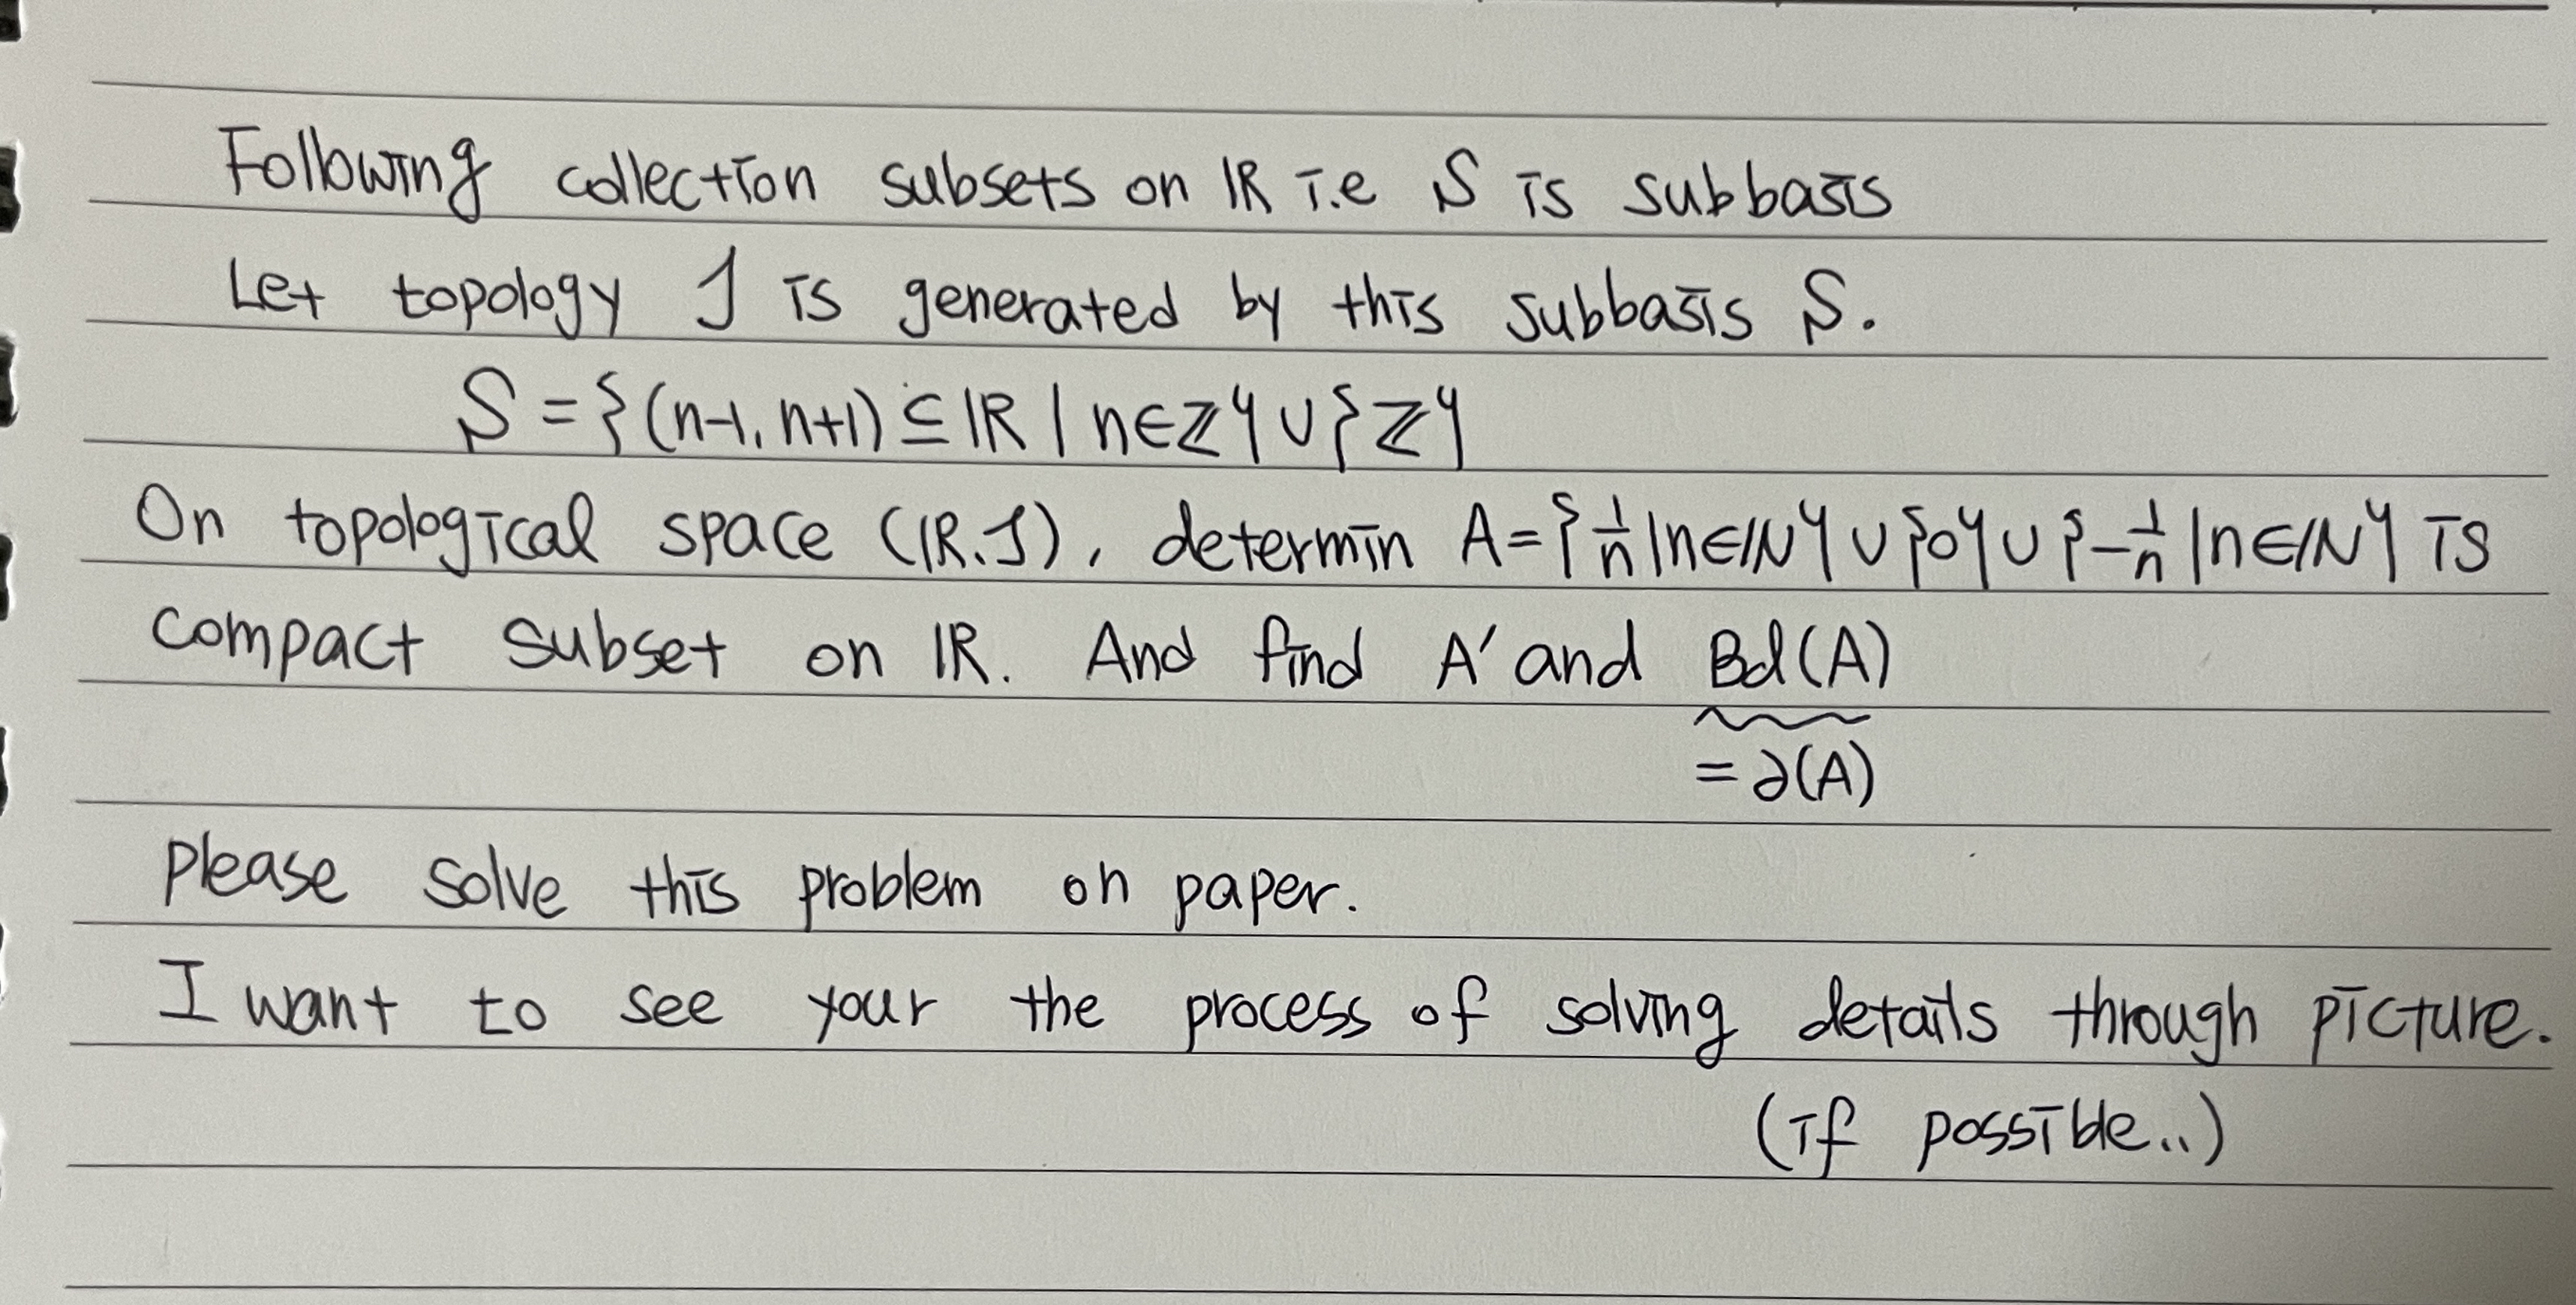 Following collection subsets on ℝ i.e S is subbasis
Let topology J is generated by this subbasis S.
S = {(n-1, n+1) ⊆ ℝ | n∈ℤ} ∪ {ℤ}
On topological space (ℝ, J), determin A = {1/n | n∈ℕ} ∪ {0} ∪ {-1/n | n∈ℕ} is
compact subset on ℝ. And find A' and Bd(A)
= ∂(A)
please solve this problem on paper.
I want to see your the process of solving details through picture.
(if possible..)